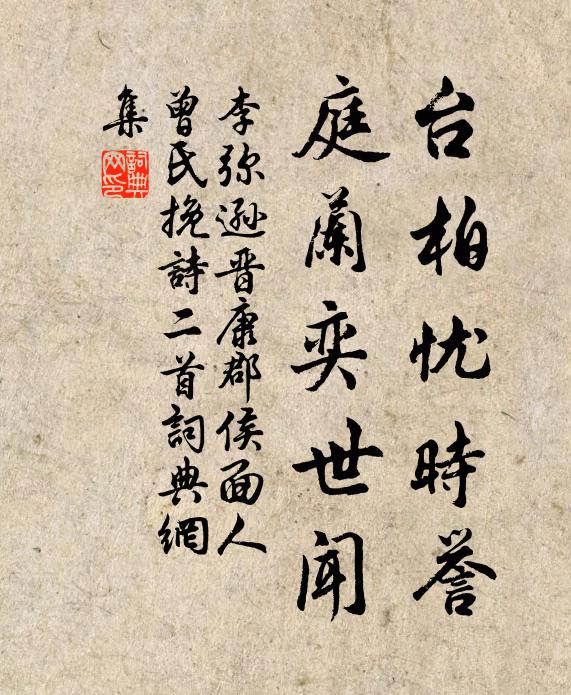 台柏忧時誉
庭蘭奕世闻
李弥遜晋康郡侯面人
曾氏挽詩二首詞典網
集
詞典网印